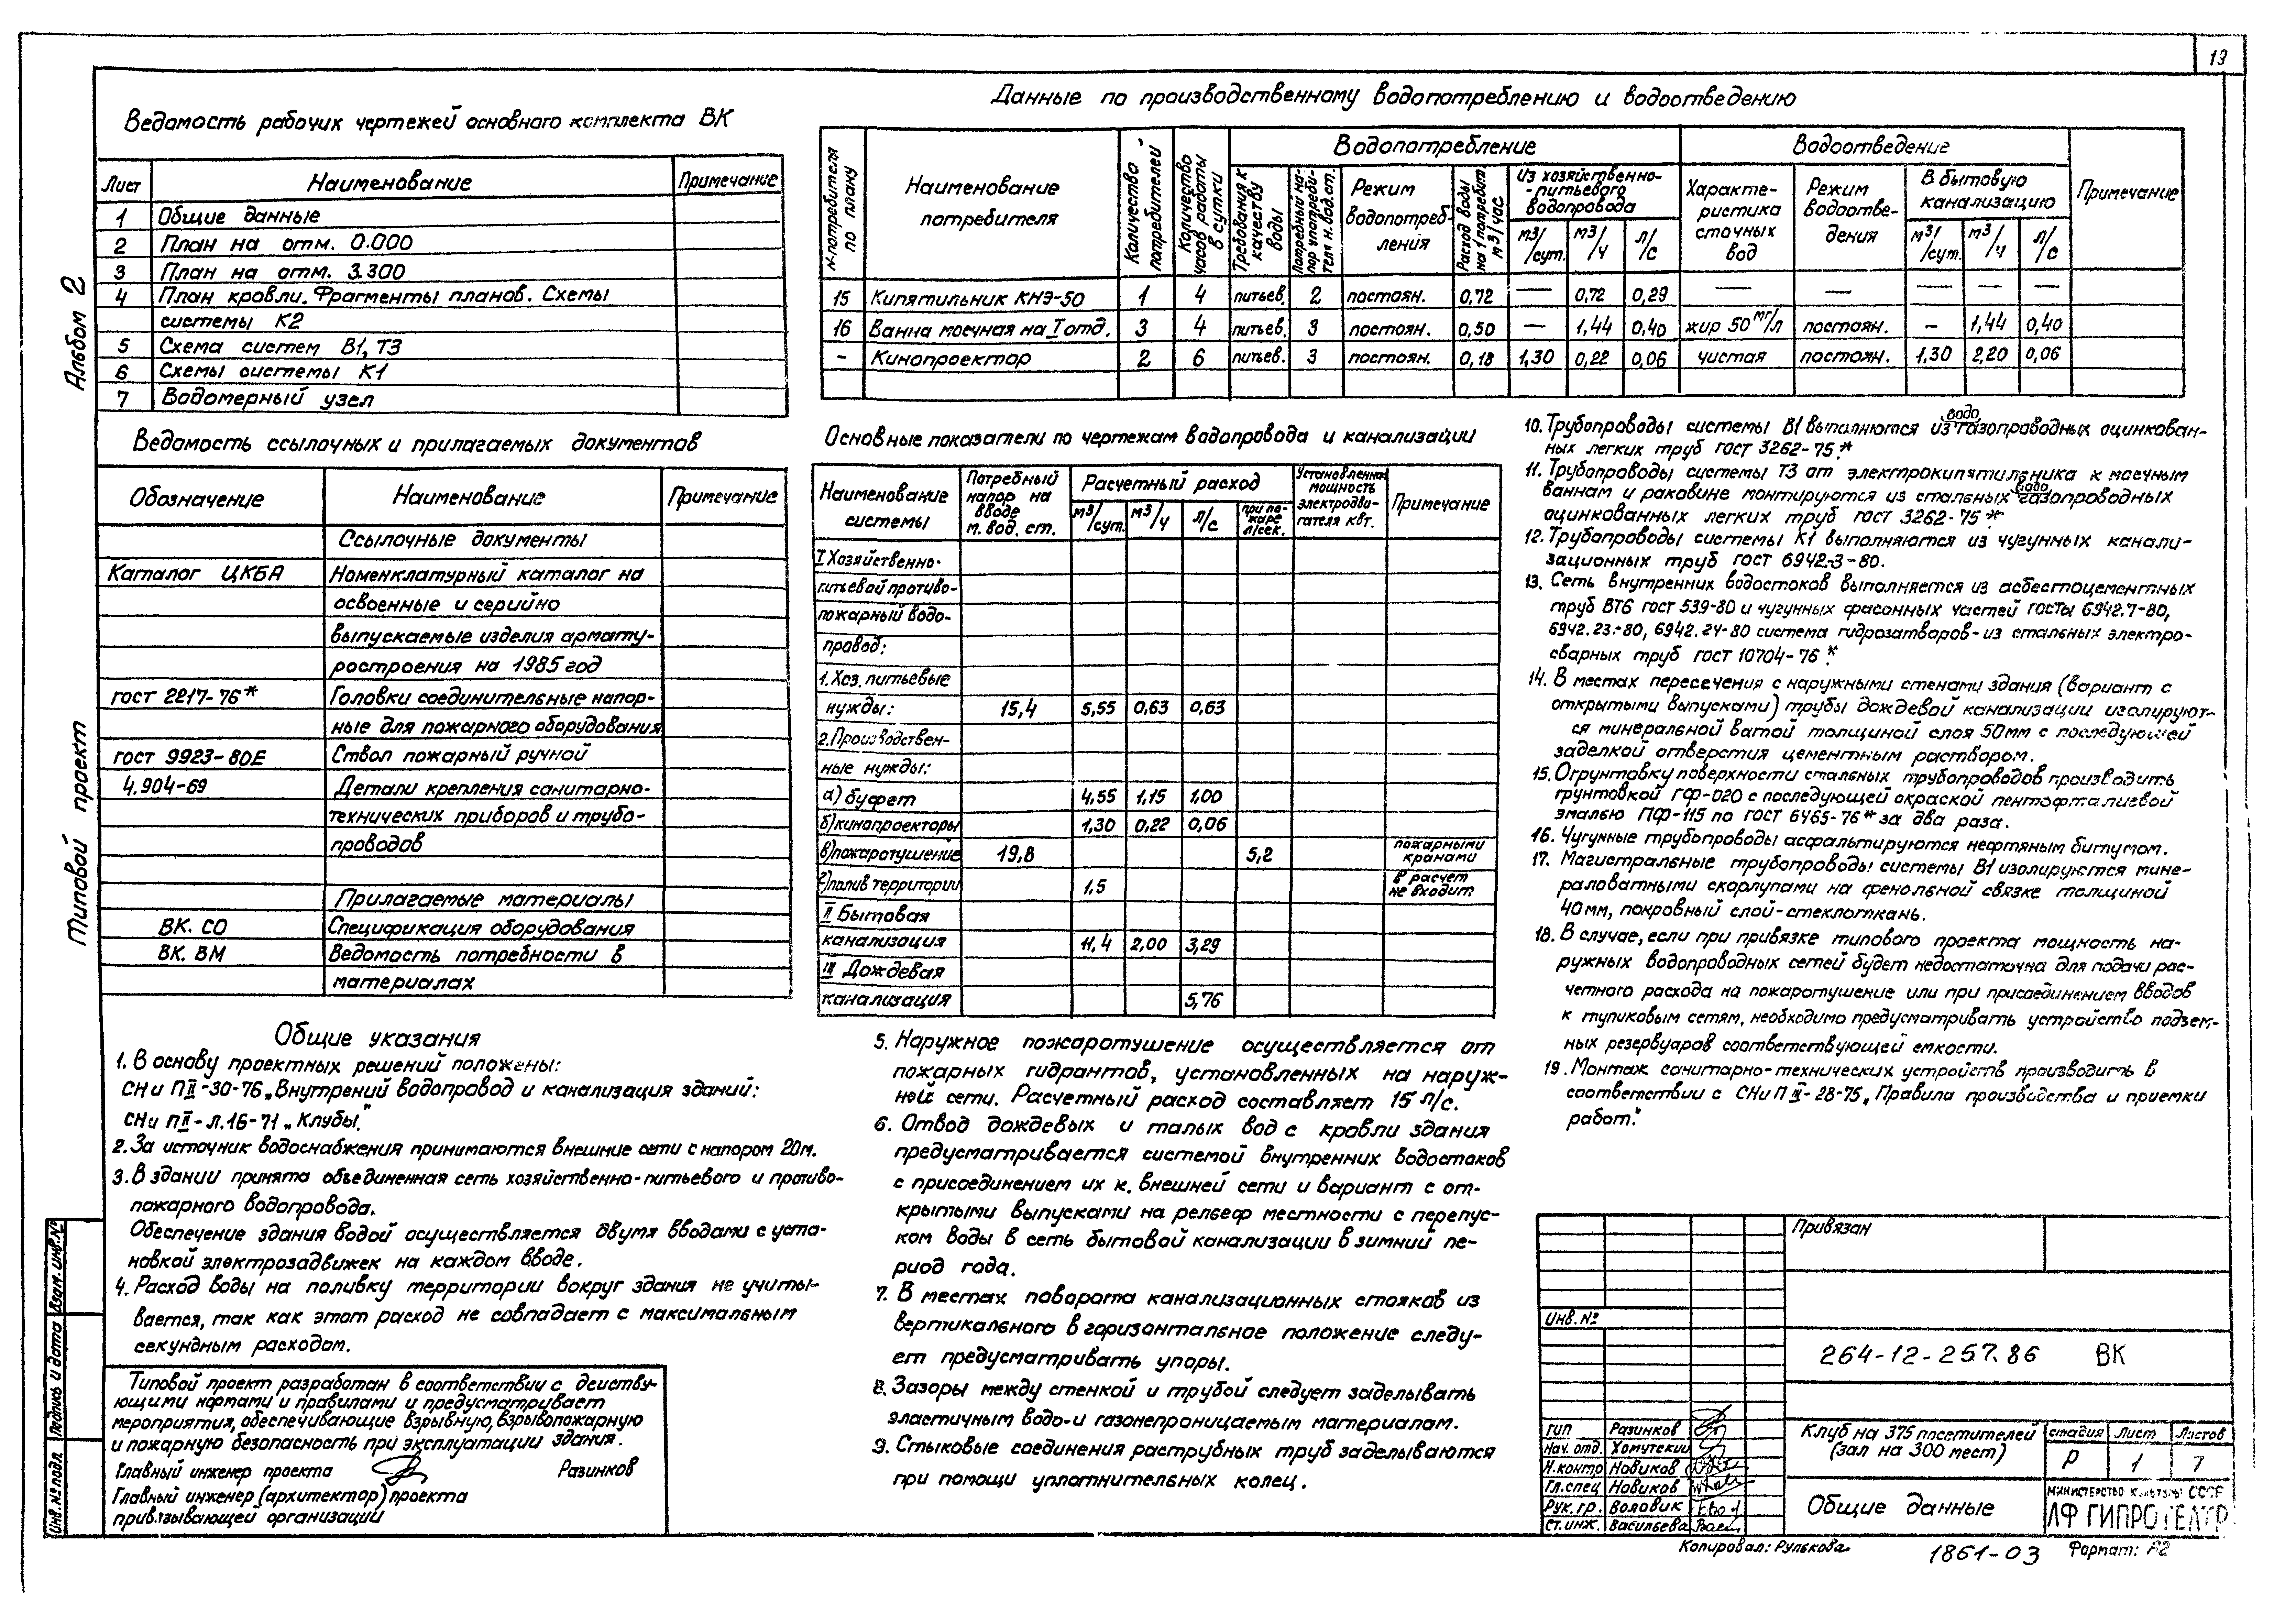 13
Альбом 2
Типовой проект
Ведомость рабочих чертежей основного комплекта ВК
Лист Наименование Примечание
1 Общие данные
2 План на отм. 0.000
3 План на отм. 3.300
4 План кровли. Фрагменты планов. Схемы
системы К2
5 Схема систем В1, Т3
6 Схемы системы К1
7 Водомерный узел
Ведомость ссылочных и прилагаемых документов
Обозначение Наименование Примечание
Ссылочные документы
Каталог ЦКБА Номенклатурный каталог на
освоенные и серийно
выпускаемые изделия армату-
ростроения на 1985 год
ГОСТ 2217-76* Головки соединительные напор-
ные для пожарного оборудования
ГОСТ 9923-80Е Ствол пожарный ручной
4.904-69 Детали крепления санитарно-
технических приборов и трубо-
проводов
Прилагаемые материалы
ВК. СО Спецификация оборудования
ВК. ВМ Ведомость потребности в
материалах
Общие указания
1. В основу проектных решений положены:
СНиПII-30-76 „Внутрений водопровод и канализация зданий:
СНиПII-Л.16-71 „Клубы."
2. За источник водоснабжения принимаются внешние сети с напором 20м.
3. В здании принята объединенная сеть хозяйственно-питьевого и противо-
пожарного водопровода.
Обеспечение здания водой осуществляется двумя вводами с уста-
новкой электрозадвижек на каждом вводе.
4. Расход воды на поливку территории вокруг здания не учиты-
вается, так как этот расход не совпадает с максимальным
секундным расходом.
Типовой проект разработан в соответствии с действу-
ющими нормами и правилами и предусматривает
мероприятия, обеспечивающие взрывную, взрывопожарную
и пожарную безопасность при эксплуатации здания.
Главный инженер проекта Разинков
Главный инженер (архитектор) проекта
привязывающей организации
Взам. инв. №
Подпись и дата
Инв. № подл.
Данные по производственному водопотреблению и водоотведению
№ потребителя по плану Наименование потребителя Количество потребителей Количество часов работы в сутки Водопотребление Водоотведение Примечание
Требования к качеству воды Потребный напор у потребителя м.вод.ст. Режим водопотребления Расход воды на 1 потребит. м3/час Из хозяйственно-питьевого водопровода Характеристика сточных вод Режим водоотведения В бытовую канализацию
м3/сут. м3/ч л/с м3/сут. м3/ч л/с
15 Кипятильник КНЭ-50 1 4 питьев. 2 постоян. 0,72 — 0,72 0,29 — — — — —
16 Ванна моечная на I отд. 3 4 питьев. 3 постоян. 0,50 — 1,44 0,40 жир 50 мг/л постоян. — 1,44 0,40
- Кинопроектор 2 6 питьев. 3 постоян. 0,18 1,30 0,22 0,06 чистая постоян. 1,30 2,20 0,06
Основные показатели по чертежам водопровода и канализации
Наименование системы Потребный напор на вводе м. вод. ст. Расчетный расход Установленная мощность электродвигателя кВт. Примечание
м3/сут. м3/ч л/с при пожаре л/сек.
I Хозяйственно-
питьевой противо-
пожарный водо-
провод:
1. Хоз. питьевые
нужды: 15,4 5,55 0,63 0,63
2. Производствен-
ные нужды:
а) буфет 4,55 1,15 1,00
б) кинопроекторы 1,30 0,22 0,06
в) пожаротушение 19,8 5,2 пожарными кранами
г) полив территории 1.5 в расчет не входит
II Бытовая
канализация 11,4 2,00 3,29
III Дождевая
канализация 5,76
5. Наружное пожаротушение осуществляется от
пожарных гидрантов, установленных на наруж-
ной сети. Расчетный расход составляет 15 л/с.
6. Отвод дождевых и талых вод с кровли здания
предусматривается системой внутренних водостоков
с присоединением их к. внешней сети и вариант с от-
крытыми выпусками на рельеф местности с перепус-
ком воды в сеть бытовой канализации в зимний пе-
риод года.
7. В местах поворота канализационных стояков из
вертикального в горизонтальное положение следу-
ет предусматривать упоры.
8. Зазоры между стенкой и трубой следует заделывать
эластичным водо-и газонепроницаемым материалом.
9. Стыковые соединения раструбных труб заделываются
при помощи уплотнительных колец.
10. Трубопроводы системы В1 выполняются из водогазопроводных оцинкован-
ных легких труб ГОСТ 3262-75.*
11. Трубопроводы системы Т3 от электрокипятильника к моечным
ваннам и раковине монтируются из стальных водогазопроводных
оцинкованных легких труб ГОСТ 3262-75*
12. Трубопроводы системы К1 выполняются из чугунных канали-
зационных труб ГОСТ 6942-3-80.
13. Сеть внутренних водостоков выполняется из асбестоцементных
труб ВТ6 ГОСТ 539-80 и чугунных фасонных частей ГОСТы 6942.7-80,
6942.23-80, 6942.24-80 система гидрозатворов-из стальных электро-
сварных труб ГОСТ 10704-76.*
14. В местах пересечения с наружными стенами здания (вариант с
открытыми выпусками) трубы дождевой канализации изолируют-
ся минеральной ватой толщиной слоя 50мм с последующей
заделкой отверстия цементным раствором.
15. Огрунтовку поверхности стальных трубопроводов производить
грунтовкой ГФ-020 с последующей окраской пентофталиевой
эмалью ПФ-115 по ГОСТ 6465-76* за два раза.
16. Чугунные трубопроводы асфальтируются нефтяным битумом.
17. Магистральные трубопроводы системы В1 изолируются мине-
раловатными скорлупами на фенольной связке толщиной
40мм, покровный слой-стеклоткань.
18. В случае, если при привязке типового проекта мощность на-
ружных водопроводных сетей будет недостаточна для подачи рас-
четного расхода на пожаротушение или при присоединением вводов
к тупиковым сетям, необходимо предусматривать устройство подзем-
ных резервуаров соответствующей емкости.
19. Монтаж санитарно-технических устройств производить в
соответствии с СНиПIII-28-75 „Правила производства и приемки
работ."
Привязан
Инв. №
264-12-257.86 ВК
ГИП Разинков
Нач. отд. Хомутский
Н.контр Новиков
Гл.спец Новиков
Рук. гр. Воловик
Ст.инж. Васильева
Клуб на 375 посетителей
(зал на 300 мест)
стадия Лист Листов
Р 1 7
Общие данные
Министерство культуры СССР
ЛФ ГИПРОТЕАТР
Копировал: Рулькова
1861-03
Формат: А2